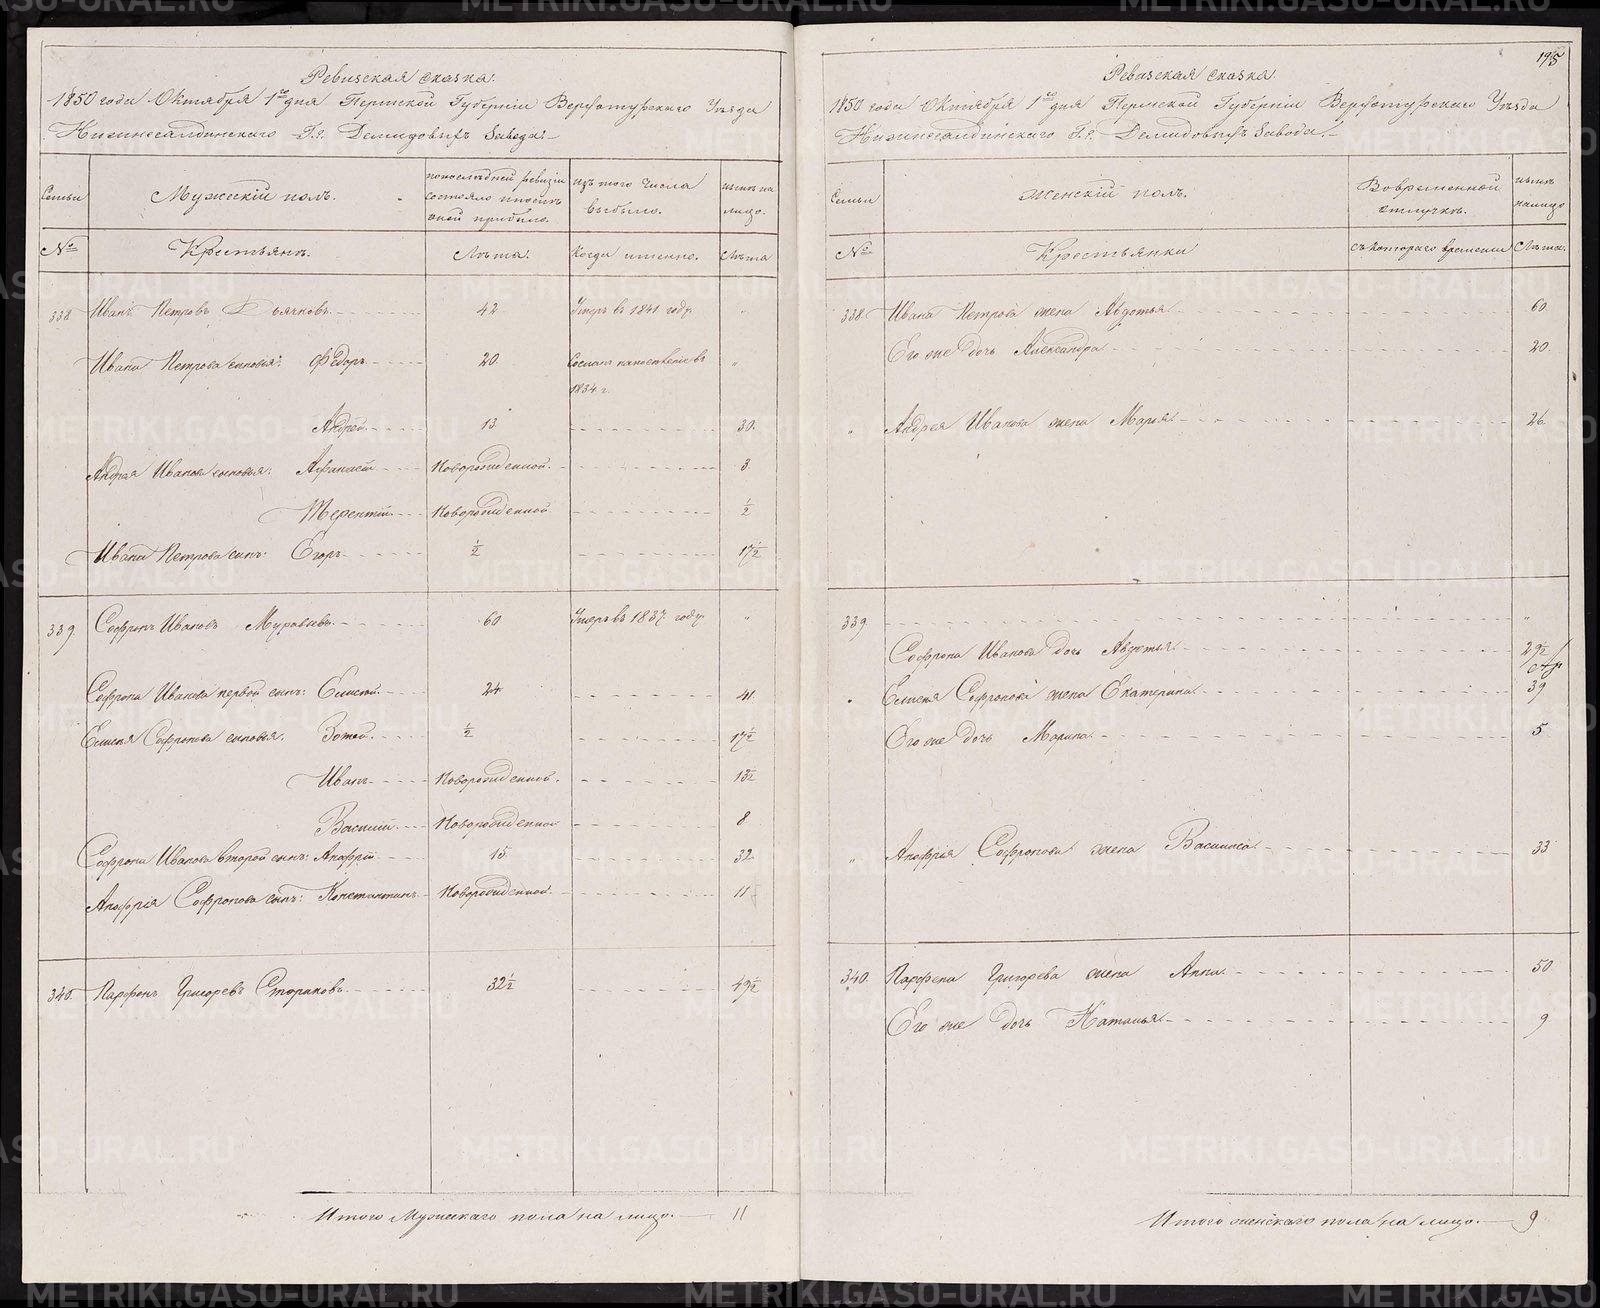 Ревизская сказка.
1850 года Октября 1го дня Пермской Губерніи Верхотурскаго Уѣзда
Нижнесалдинскаго Г.г. Демидовыхъ Завода.
Семьи
Мужескій полъ.
по последней ревизіи состояло и после оной прибыло.
изъ того числа выбыло.
нынѣ на лицо.
№
Крестьянъ.
Лѣта.
Когда именно.
Лѣта
338 Иванъ Петровъ Дьячковъ 42 Умеръ в 1841 году "
Ивана Петрова сыновья: Федоръ 20 Сосланъ на поселеніе въ "
1834 г.
Андрей 13 30.
Андрея Иванова сыновья: Афанасій Новорожденной. 3
Терентій Новорожденной ½
Ивана Петрова сынъ: Егоръ ½ 17½
339 Софронъ Ивановъ Муравьевъ 60 Умеръ въ 1837 году "
Софрона Иванова первой сынъ: Елисей 24 41.
Елисея Софронова сыновья. Зотей ½ 17½
Иванъ Новорожденной. 13½
Василий Новорожденной 8
Софрона Иванова второй сынъ: Анофрій 15 32
Анофрія Софронова сынъ: Константинъ Новорожденной. 11
340. Парфенъ Григорьевъ Стариковъ 32½ 49½
Итого Мужескаго пола на лицо. 11
195
Ревизская сказка.
1850 года Октября 1го дня Пермской Губерніи Верхотурскаго Уѣзда
Нижнесалдинскаго Г.г. Демидовыхъ Завода.
Семьи
Женскій полъ.
Во временной отлучкѣ.
нынѣ на лицо
№
Крестьянки
съ котораго времени
Лѣта.
338. Ивана Петрова жена Авдотья 60.
Его же дочь Александра 20.
" Андрея Иванова жена Марья 26.
339 "
Софрона Иванова дочь Авдотья 29½
Елисея Софронова жена Екатерина 39
Его же дочь Марина 5
" Анофрія Софронова жена Василиса 33
340. Парфена Григорьева жена Анна 50
Его же дочь Наталья 9
Итого женскаго пола на лицо. 9
METRIKI.GASO-URAL.RU